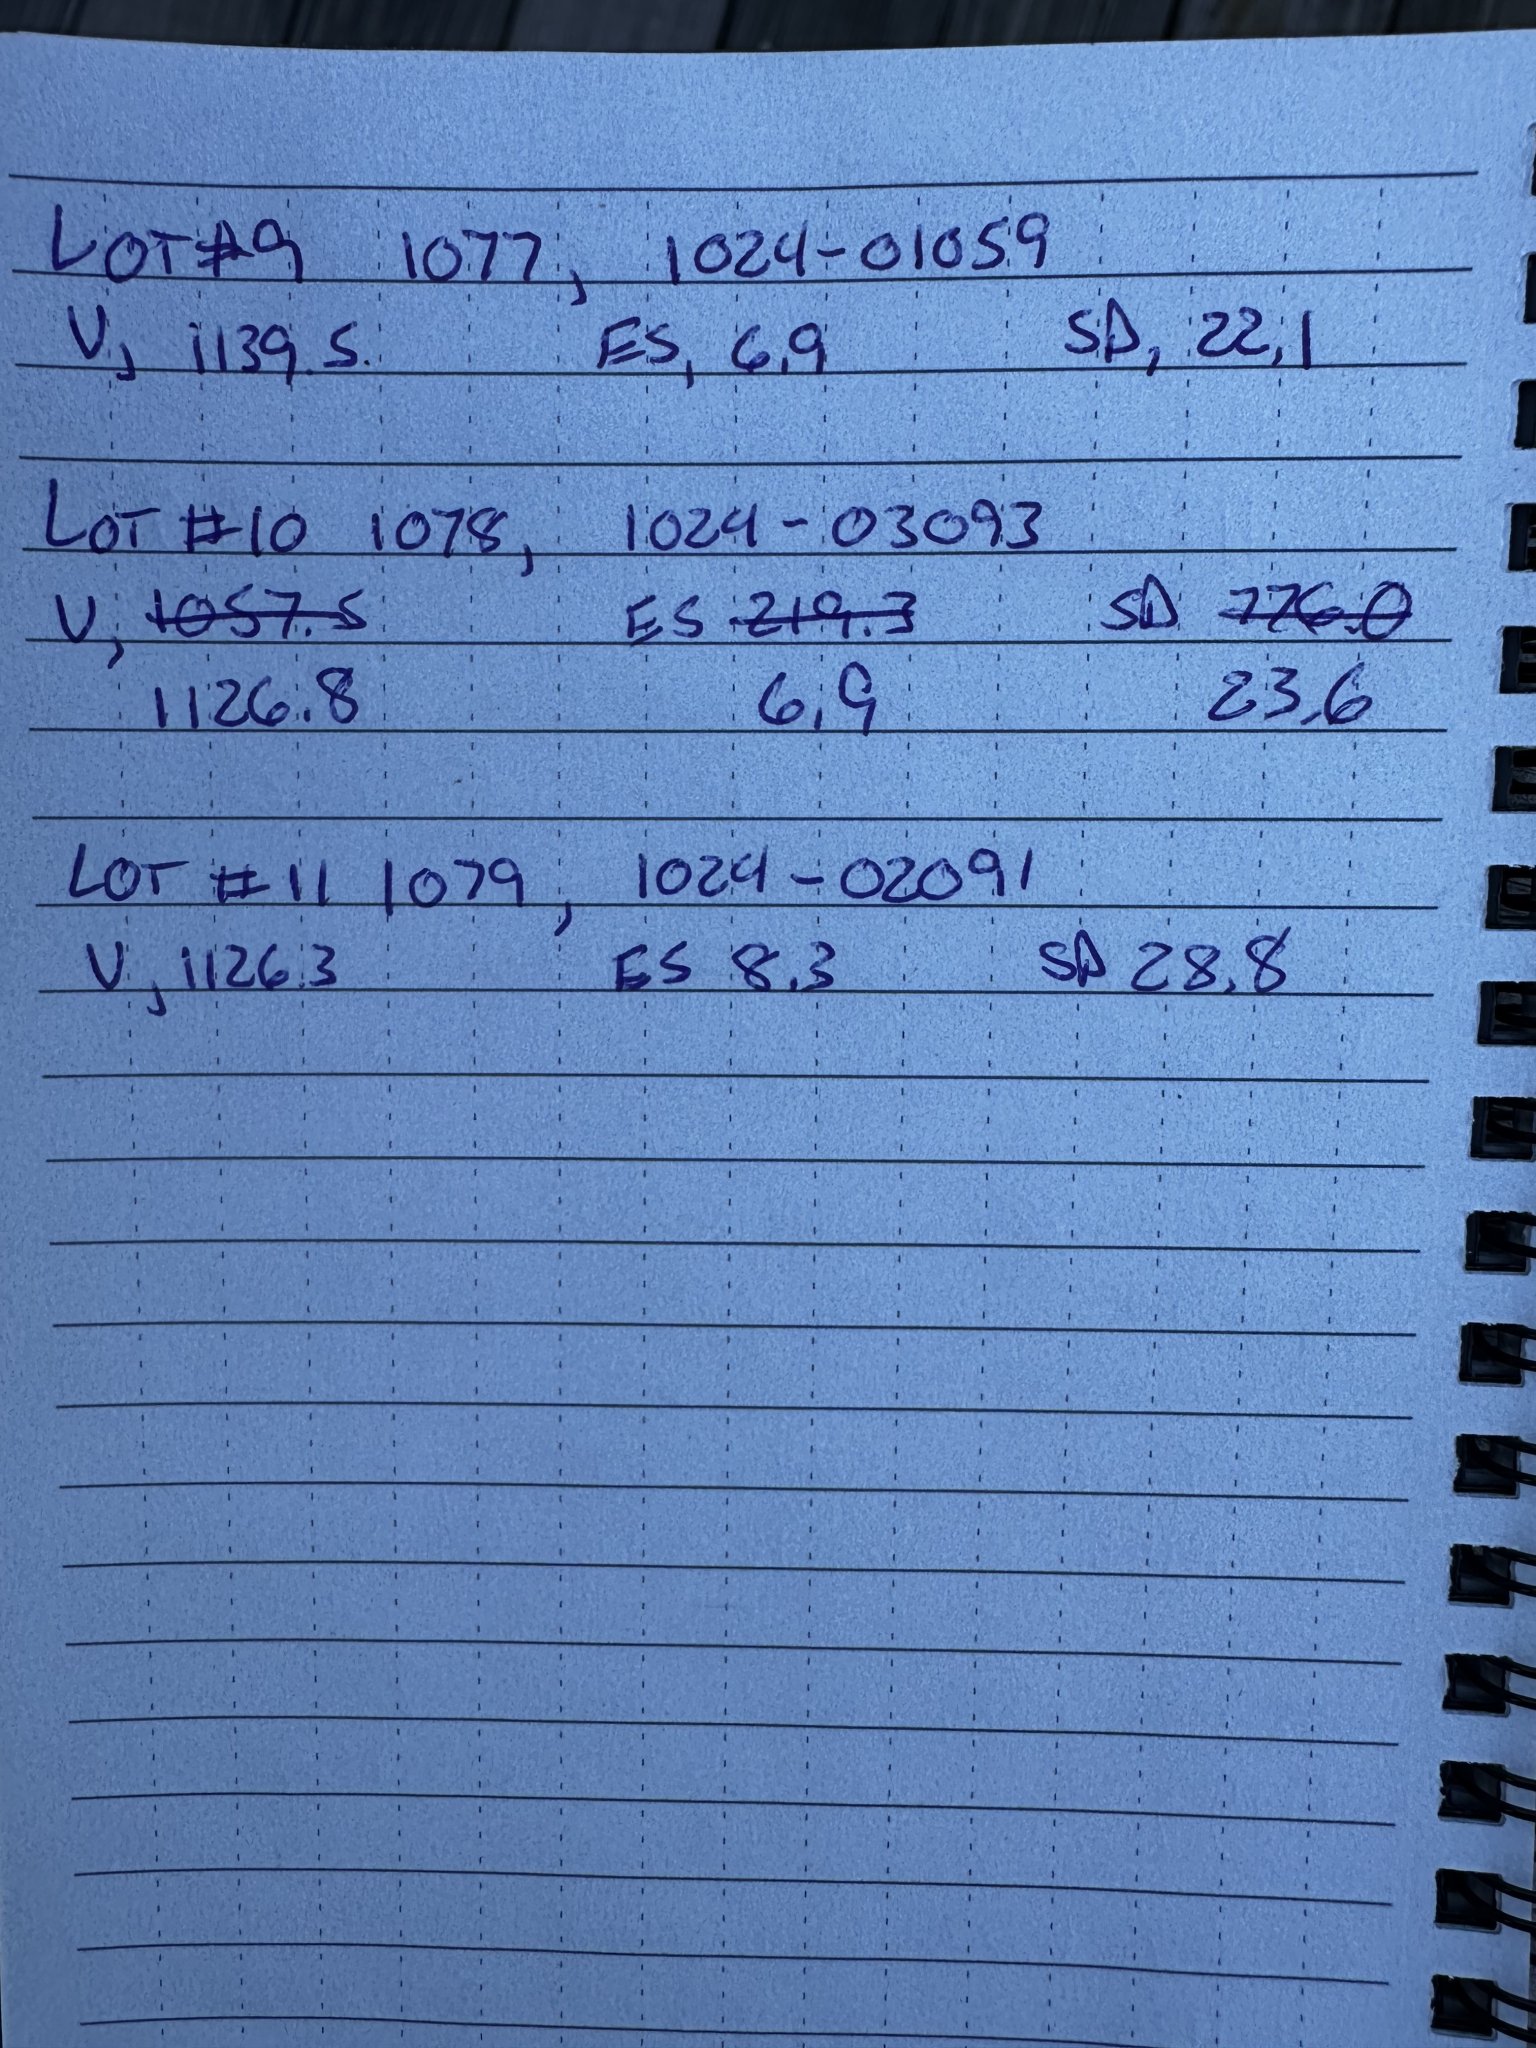 LOT #9 1077, 1024-01059
V, 1139.5. ES, 6.9 SD, 22.1
LOT #10 1078, 1024-03093
V, 1057.5 ES 219.3 SD 776.0
1126.8 6.9 23.6
LOT #11 1079, 1024-02091
V, 1126.3 ES 8.3 SD 28.8